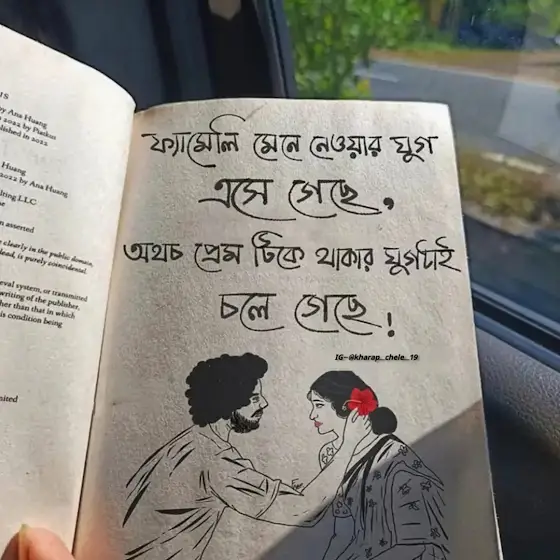 by Ana Huang
2022 by Piatkus
lished in 2022
Huang
2022 by Ana Huang
lting LLC
n asserted
clearly in the public domain,
dead, is purely coincidental.
eval system, or transmitted
writing of the publisher,
her than that in which
is condition being
mited
ফ্যামেলি মেনে নেওয়ার যুগ
এসে গেছে,
অথচ প্রেম টিকে থাকার যুগটাই
চলে গেছে!
IG-@kharap_chele_19